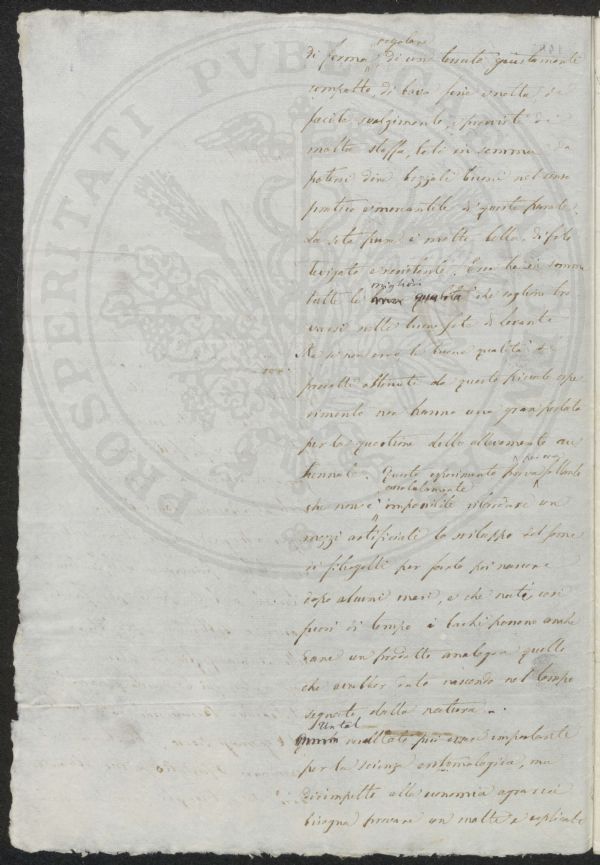 regolare
di forma, di una tenuta giustamente
compatta, di bava fine e molta di
facile svolgimento, provisti di
molta stoffa, tali in somma da
potersi dire bozzoli buoni nel senso
pratico e mercantile di queste parole.
La seta pura è molto bella, di filo
levigato e resistente. Essa ha in somma
migliori
tutte le qualità che sogliono tro
varsi nelle buone sete di levante
Ma se non erro le buone qualità
prodotti ottenuti da questo piccolo espe
rimento non hanno una gran portata
per la questione dello allevamento au
tunnale. Questo esperimento prova soltanto
per ora
assolutamente
che non è impossibile ritardare con
mezzi artificiali lo sviluppo del seme
di filugelli per farlo poi nascere
dopo alcuni mesi, e che nati così
fuori di tempo i bachi possono anche
dare un prodotto analogo a quello
che avrebber dato nascendo nel tempo
segnato dalla natura.
Un tal
resultato può essere importante
per la scienza entomologica, ma
dirimpetto alla economia agraria
bisogna provare un molto e esplicato
PROSPERITATI PUBLICAE